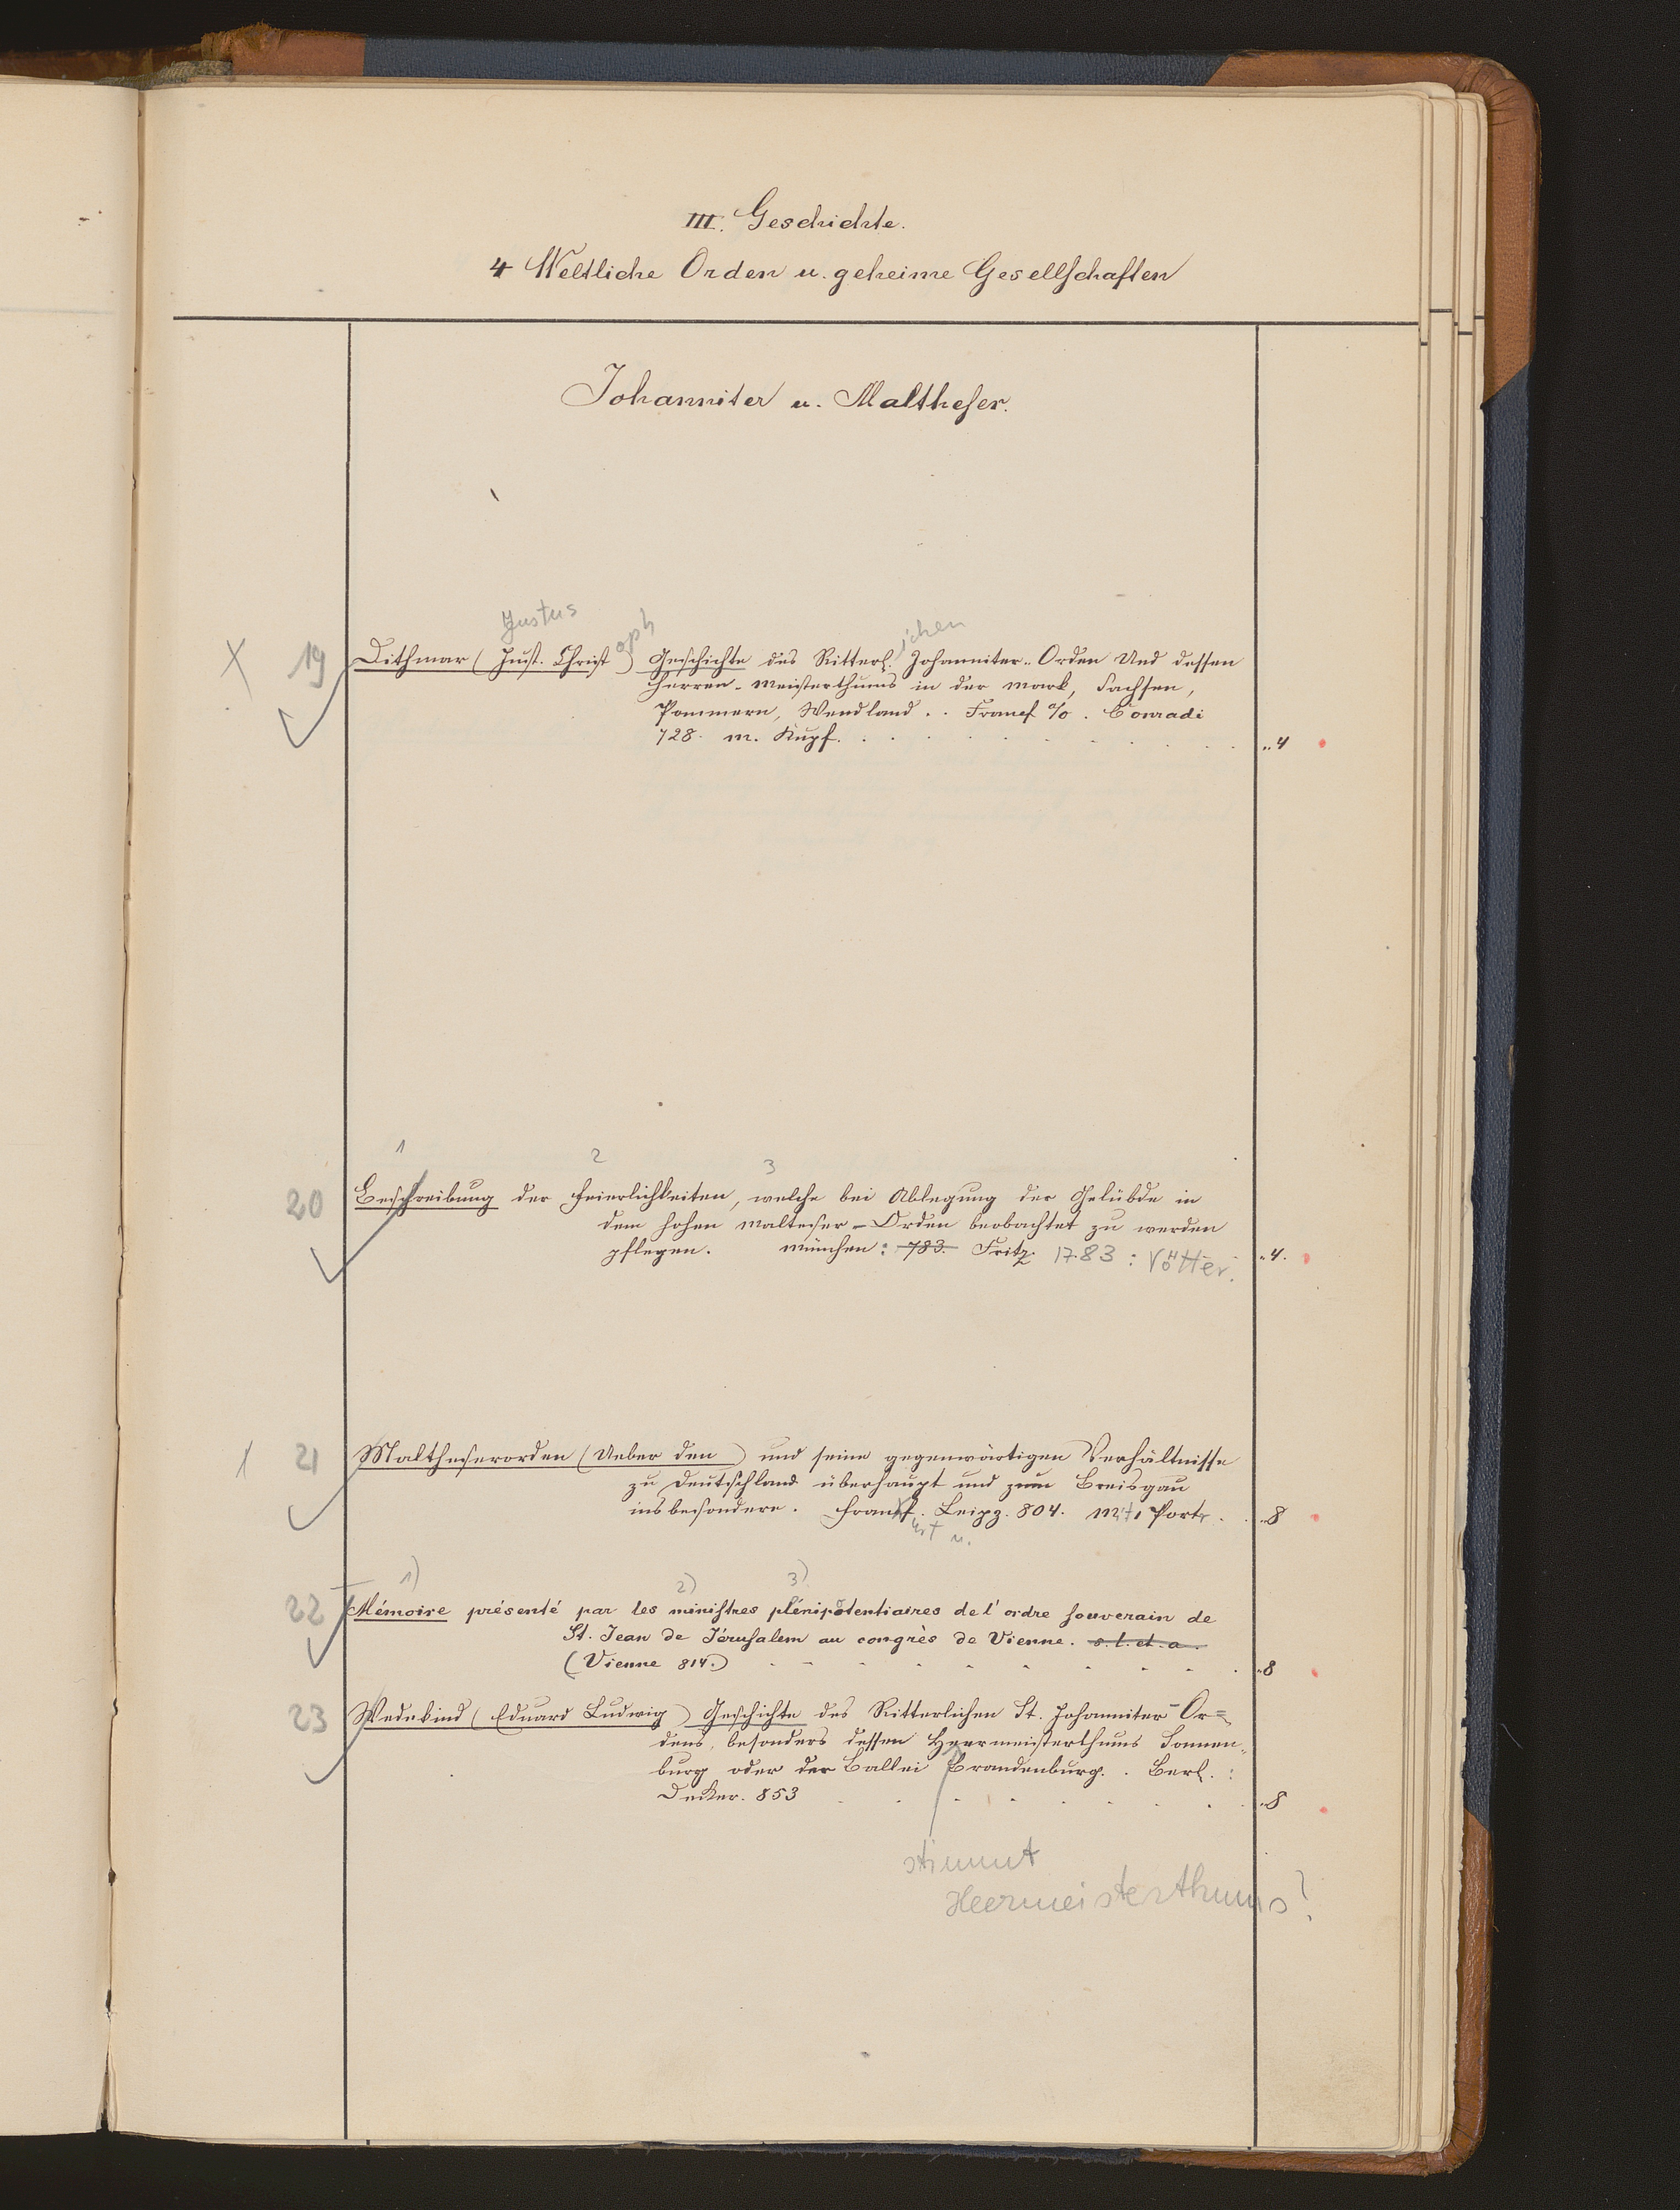 III. Geschichte.
4 Weltliche Orden u. geheime Gesellschaften
Johanniter u. Maltheser.
Justus oph ichen
X 19 Dithmar (Just. Christ ) Geschichte des Ritterl. Johanniter-Orden Und dessen
Herren-Meisterthums in der Mark, Sachsen,
Pommern, Wendland . . Francf a/o. Conradi
728. m. Kupf. . . . . . . . . . „4
1 2 3
20 Beschreibung der Feierlichkeiten, welche bei Ablegung der Gelübde in
dem hohen Malteser-Orden beobachtet zu werden
pflegen. München: 783. Fritz 1783: Vötter. „4.
21 Maltheserorden (Ueber den ) und seine gegenwärtigen Verhältnisse
zu Deutschland überhaupt und zum Breisgau
insbesondere. Frankf. Leipz. 804. mit 1 Portr. . „8
urt u.
1) 2) 3)
22 Mémoire présenté par les ministres plénipotentiaires de l'ordre souverain de
St. Jean de Jérusalem au congrès de Vienne. s. l. et. a.
(Vienne 814.) - - - - - - - - - „8
23 Wedekind (Eduard Ludwig ) Geschichte des Ritterlichen St. Johanniter-Or=
dens, besonders dessen Heermeisterthums Sonnen-
burg oder der Ballei Brandenburg. . Berl. :
Decker. 853 . . . . . . . . „8
stimmt
Heermeisterthums?